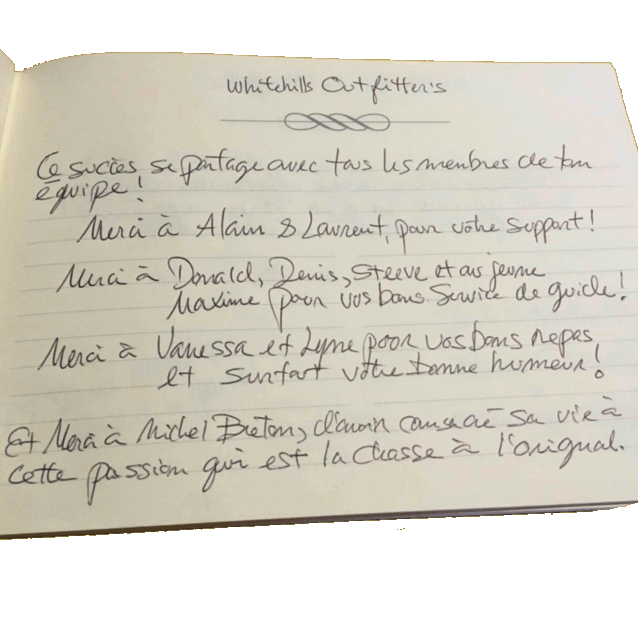 Whitehills Outfitter's
Ce succès se partage avec tous les membres de ton
équipe!
Merci à Alain & Laurent, pour votre support!
Merci à Donald, Denis, Steeve et au jeune
Maxime pour vos bons service de guide!
Merci à Vanessa et Lyne pour vos bons repas,
et surtout votre bonne humeur!
Et Merci à Michel Breton, d'avoir consacré sa vie à
cette passion qui est la chasse à l'orignal.